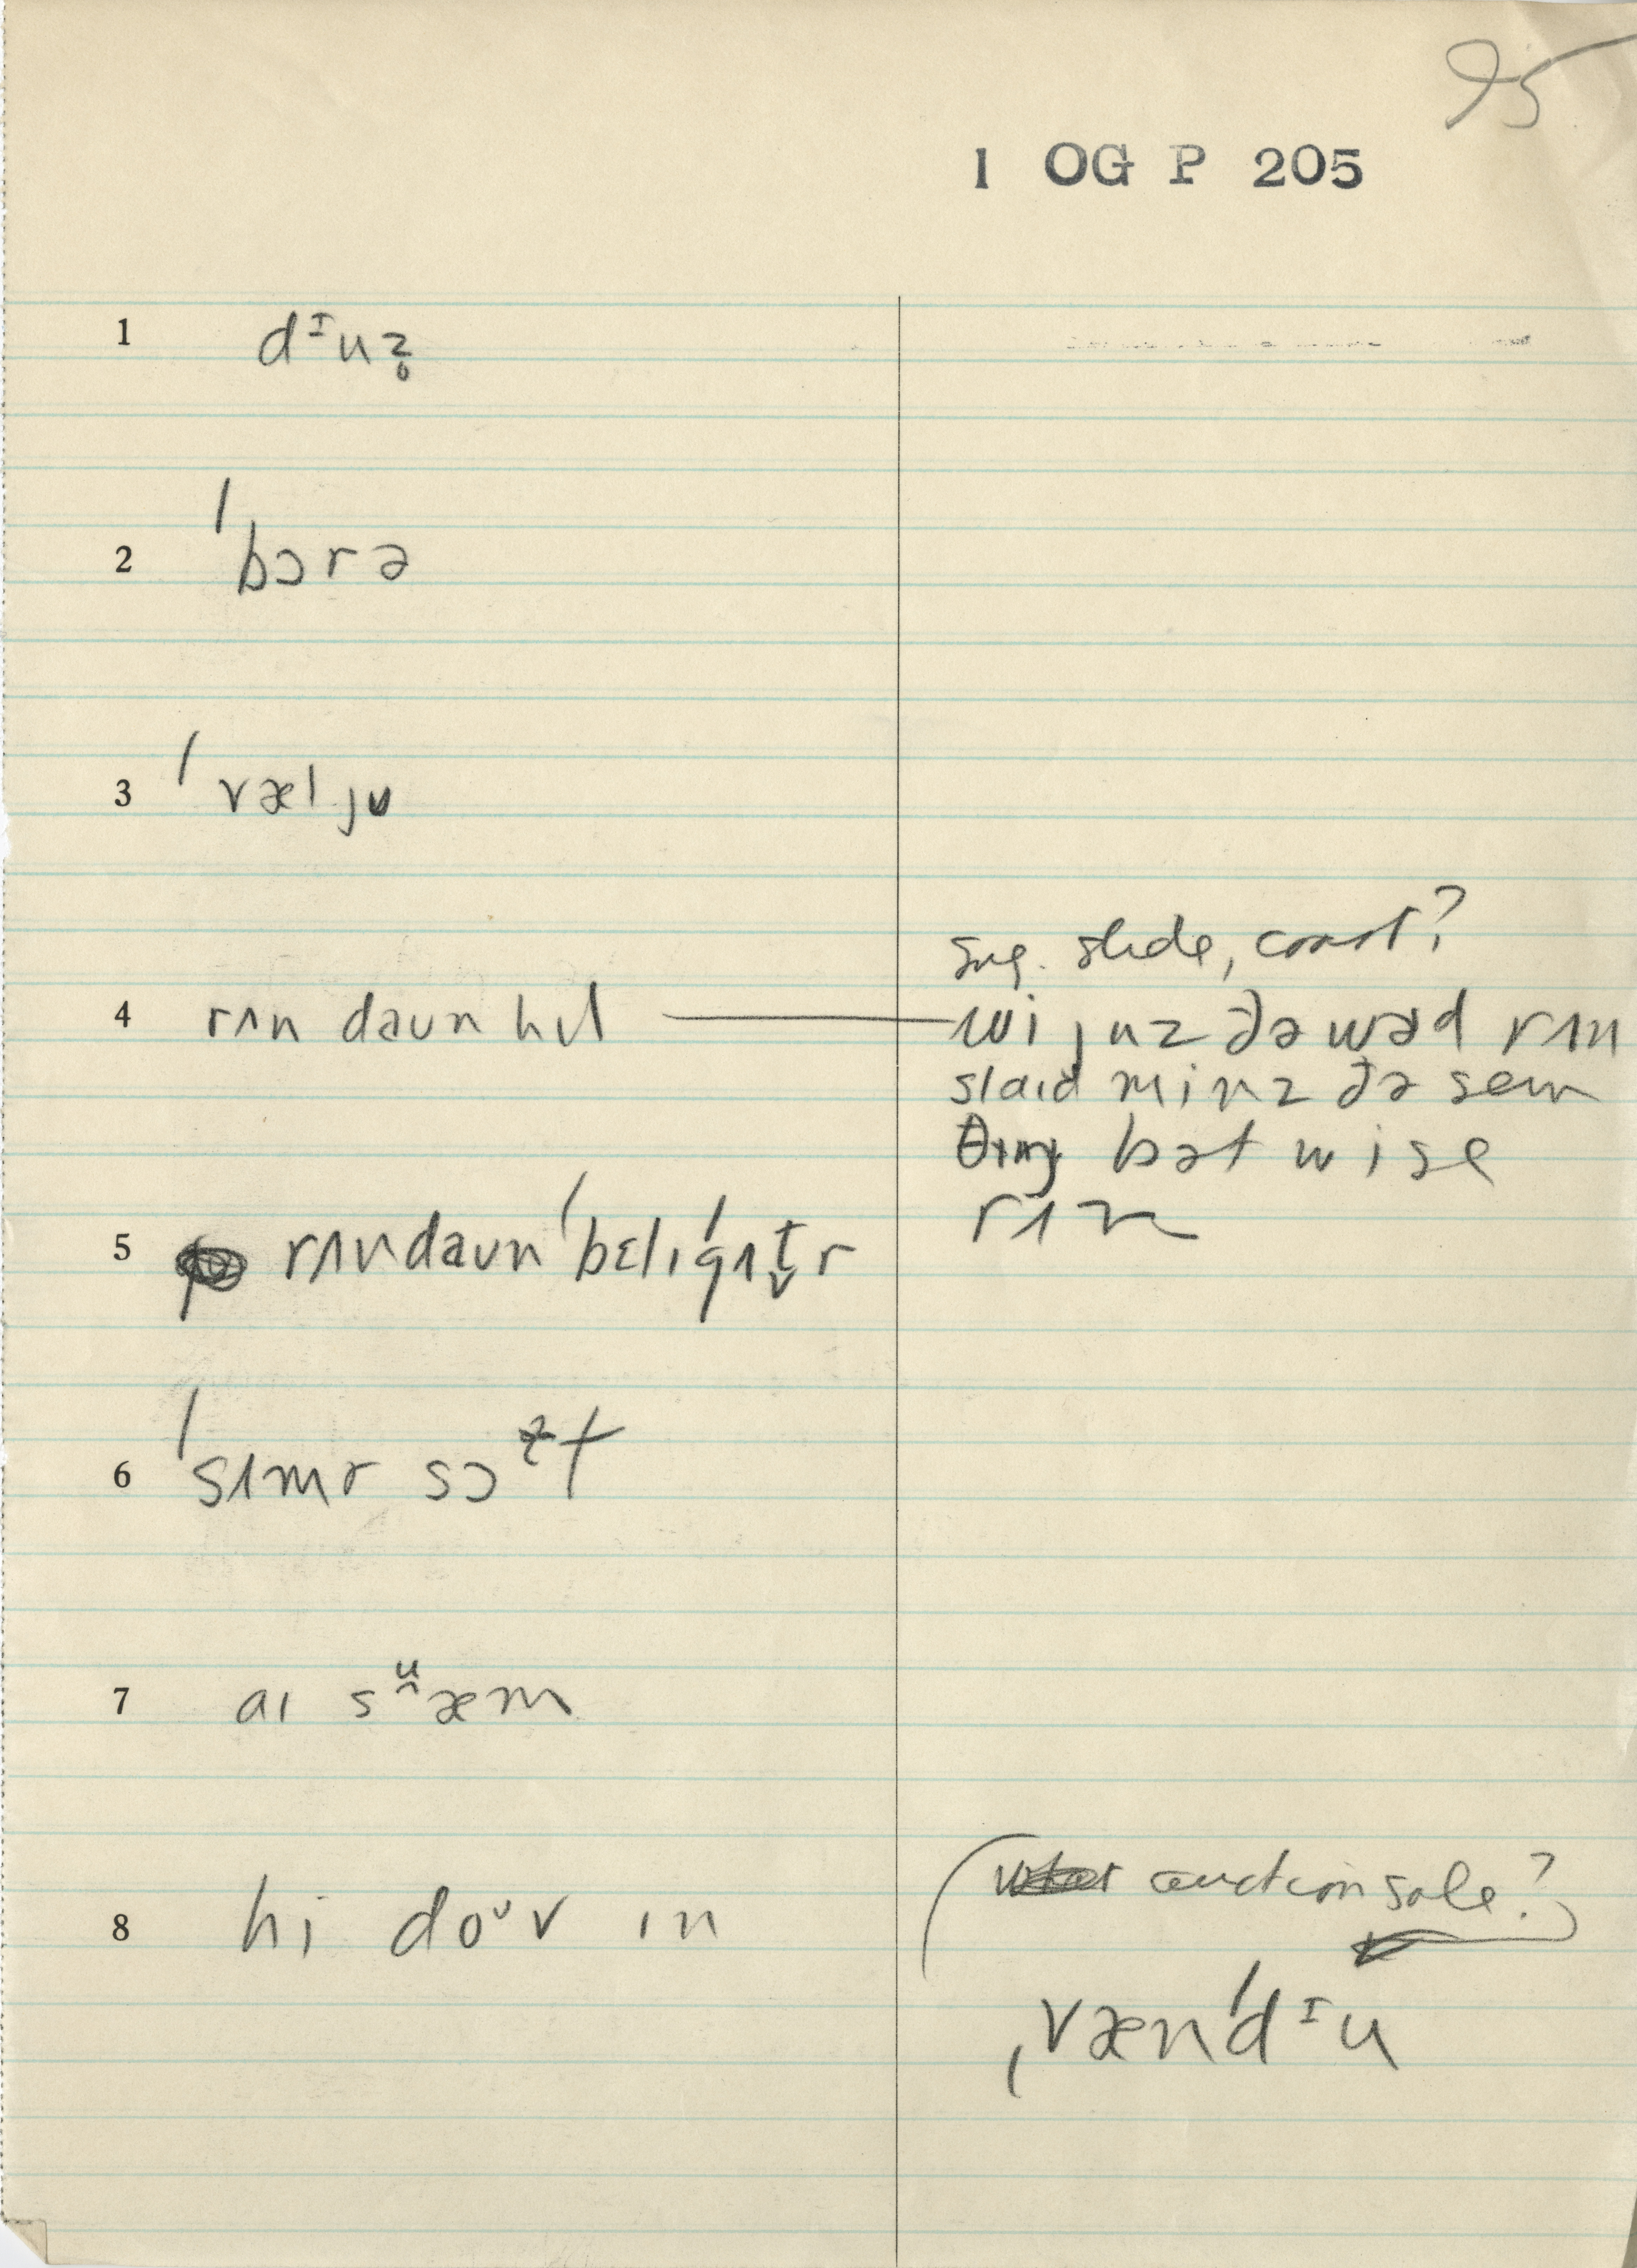 95
1 OG P 205
1 dᶦuz̥
2 ˈbɔrə
3 ˈvæljʊ
4 rʌn daʊn hɪl
sug. slide, coast?
wi juz ðə wɚd rʌn
slaɪd minz ðə sem
θɪŋ bət wi se
rʌn
5 rʌn daʊn ˈbɛlɪˈgʌt̬r
6 ˈsʌmɚ sɔ t
7 aɪ sᵘ̯æm
8 hi doᶷv ɪn
(auction sale?)
ˌvænˈdᶦu